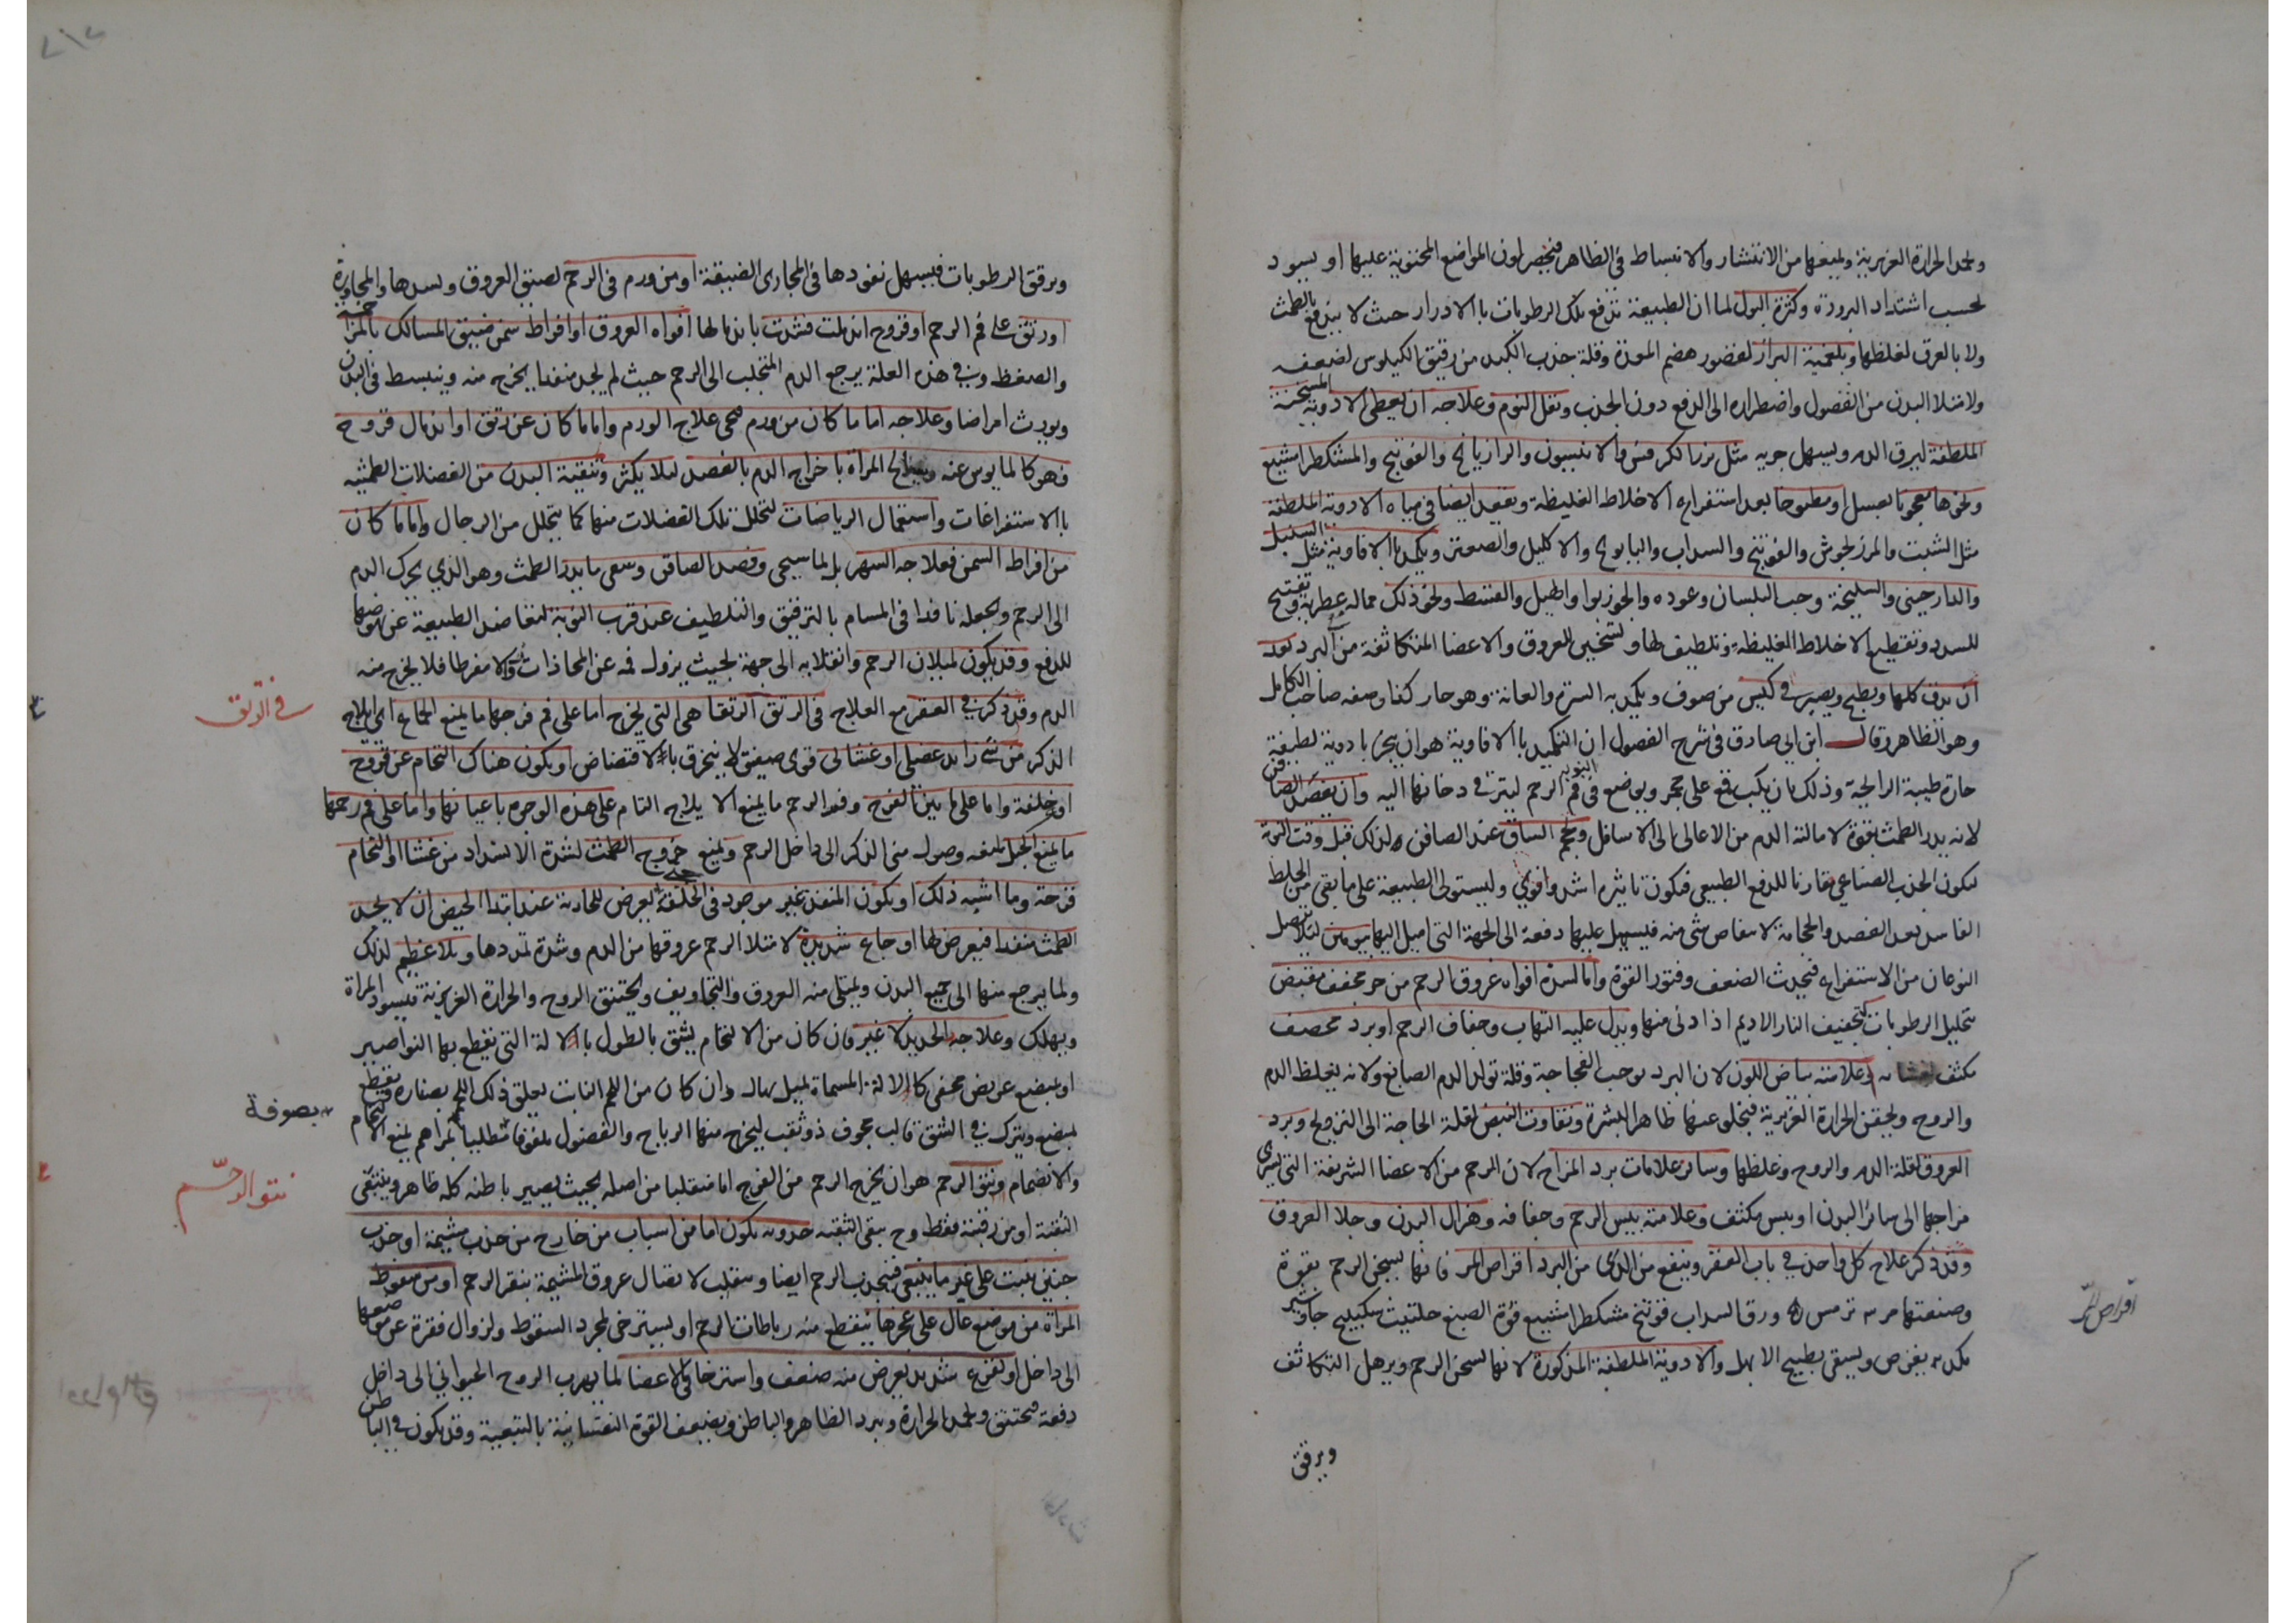 ويخمد الحرارة الغريزية ويمنعها من الانتشار والانبساط في الظاهر فيخضر لون المواضع المحتوية عليها او يسود
بحسب اشتداد البرودة وكثرة البول لما ان الطبيعة تدفع تلك الرطوبات بالادرار حيث لا يندفع بالطمث
ولا بالعرق لغلظها وبلغمية البراز لقصور هضم المعدة وقلة جذب الكبد من رقيق الكيلوس لضعفه
ولامتلا البدن من الفضول واضطراره الى الدفع دون الجذب وثقل النوم وعلاجه ان يعطى الادوية المسخنة
الملطفة ليرق الدم ويسهل جريه مثل بزر الكرفس والانيسون والرازيانج والفوتنج والمشكطرامشيع
ونحوها معجونا بعسل او مطبوخا بعد استفراغ الاخلاط الغليظة ويقعد ايضا في مياه الادوية الملطفة
مثل الشبت والمرزنجوش والفوتنج والسداب والبابونج والاكليل والصعتر ويكمد بالافاوية مثل السنبل
والدارجيني والسليخة وحب البلسان وعوده والجوزبوا والهيل والقسط ونحو ذلك مما له عطرية وتفتيح
للسدد وتقطيع الاخلاط الغليظة وتلطيف لها وتسخين العروق والاعضا المتكاثفة من البرد بعد
ان يدق كلها ويطبخ ويصير في كيس من صوف ويكمد به السرة والعانة وهو حار كذا وصفه صاحب الكامل
وهو الظاهر وقال ابن ابي صادق في شرح الفصول ان التكميد بالافاوية هو ان يبخر بادوية لطيفة
حارة طيبة الرايحة وذلك بان يكب قمع على مجمر ويوضع في فم الرحم انبوبه ليترقى دخانها اليه وان يفصد الصافن
لانه يدر الطمث بقوة لامالته الدم من الاعالي الى الاسافل ويحجم الساق عند الصافن وذلك قبل وقت النوبة
ليكون الجذب الصناعي مقارنا للدفع الطبيعي فيكون تاثيره اشد واقوى وليستولى الطبيعة على ما بقى من الخلط
الفاسد بعد الفصد والحجامة لانتقاص شي منه فيسهل عليها دفعه الى الجهة التي اميل اليها بيومين ليلا يتصل
النوعان من الاستفراغ فيحدث الضعف وفتور القوة واما لسدة افواه عروق الرحم من حر مجفف مقبض
بتحليل الرطوبات كتجفيف النار الاديم اذا دنى منها ويدل عليه التهاب وجفاف الرحم او برد محصف
مكثف وعلامته بياض اللون لان البرد يوجب الفجاجة وقلة تولد الدم الصابغ ولانه يغلظ الدم
والروح ويحقن الحرارة الغريزية فيتخلى عنها ظاهر البشرة وتفاوت النبض لقلة الحاجة الى الترويح وبرد
العروق لقلة الدم والروح وغلظها وساير علامات برد المزاج لان الرحم من الاعضا الشريفة التي يسرى
مزاجها الى سائر البدن او يبس مكثف وعلامته يبس الرحم وجفافه وهزال البدن وخلا العروق
وقد ذكر علاج كل واحد في باب العقر وينفع من الذي من البرد اقراص المر فانها يسخن الرحم بقوة
وصنعتها مر ترمس ورق السداب فوتنج مشكطرامشيع فوة الصبغ حلتيت سكبينج جاوشير
يقرص ويسقى بطبيخ الابهل والادوية الملطفة المذكورة لانها تسخن الرحم ويزيل التكاثف
ويرقق
اقراص المر
ويرقق الرطوبات فيسهل نفوذها في المجاري الضيقة او من ورم في الرحم لضيق العروق وسدها والمجاورة
او رتق على فم الرحم او قروح اندملت فسدت باندمالها افواه العروق او افراط سمن ضيق المسالك بالمزاحمة
والضغط وفي هذه العلة يرجع الدم المتجلب الى الرحم حيث لم يجد منفذا يخرج منه وينبسط في البدن
ويورث امراضا وعلاجه اما ما كان من ورم فهي علاج الورم واما ما كان عن رتق او اندمال قروح
فهو كالمايوس عنه ويعالج المراة باخراج الدم بالفصد ليلا يكثر وتنقية البدن من الفضلات الطمثية
بالاستفراغات واستعمال الرياضات لتحلل تلك الفضلات منها كما يتحلل من الرجال واما ما كان
من افراط السمن فعلاجه السهر بل ما سيجى وفصد الصافن وسقى ما يدر الطمث وهو الذي يحرك الدم
الى الرحم ويجعله نافذا في المسام بالترقيق والتلطيف عند قرب النوبة لتقاضد الطبيعة عن نهوضها
للدفع وقد يكون لميلان الرحم وانقلابه الى جهة بحيث يزول فمه عن المحاذاة زوالا مفرطا فلا يخرج منه
الدم وقد ذكر في العقر مع العلاج في الرتق الرتقا هي التي يخرج اما على فم فرجها ما يمنع الجماع اي ايلاج
الذكر من شي زايد عضلي او غشائي قوى صفيق لا ينخرق بالاقتضاض او يكون هناك التحام عن قروح
او خلقة واما على ما بين الفرج وفم الرحم ما يمنع الايلاج التام على هذه الوجوه باعيانها واما على فم رحمها
ما يمنع الحبل لمنعه وصول مني الذكر الى داخل الرحم ويمنع خروج الطمث لشدة الانسداد من غشا او التحام
قرحة وما اشبه ذلك او يكون المنفذ غير موجود في الخلقة يعرض للجارية عند ابتدا الحيض ان لا يجد
الطمث منفذا فيعرض لها اوجاع شديدة لامتلا الرحم عروقها من الدم وشدة تمددها وبلا عظيم لذلك
ولما يرجع منها الى جميع البدن ويمتلى منه العروق والتجاويف ويختنق الروح والحرارة الغريزية فيسود المراة
ويهلك وعلاجه الحديد لا غير فان كان من الالتحام يشق بالطول بالالة التي تقطع بها النواصير
او بمبضع عريض مخفى كالالة المسماة بميل بهال وان كان من اللحم النابت يعلق ذلك اللحم بصنارة فيقطع
بمبضع ويترك في الشق قالب مجوف ذو ثقب ليخرج منها الرياح والفضول ملفوفا مطليا بمراهم يمنع الالتحام
والانضمام ونتو الرحم هو ان يخرج الرحم من الفرج اما منقلبا من اصله بحيث يصير باطنه كله ظاهرا وينتقى
الثقبة او من رقبته فقط وح يبقى الثقبة حدوثه يكون اما من اسباب من خارج من جذب مشيمة او جذب
جنين ميت على غير ما ينبغى فينجذب الرحم ايضا وينقلب لاتصال عروق المشيمة بنقر الرحم او من سقوط
المراة من موضع عال على عجزها فينقطع منه رباطات الرحم او يسترخى لمجرد السقوط ولزوال فقرة عن موضعها
الى داخل او لفزع شديد يعرض منه ضعف واسترخا في الاعضا لما يهرب الروح الحيواني الى داخل
دفعة فيختنق ويخمد الحرارة ويبرد الظاهر والباطن ويضعف القوة النفسانية بالتبعية وقد يكون في الباطن
في الرتق
بصوفة
نتو الرحم